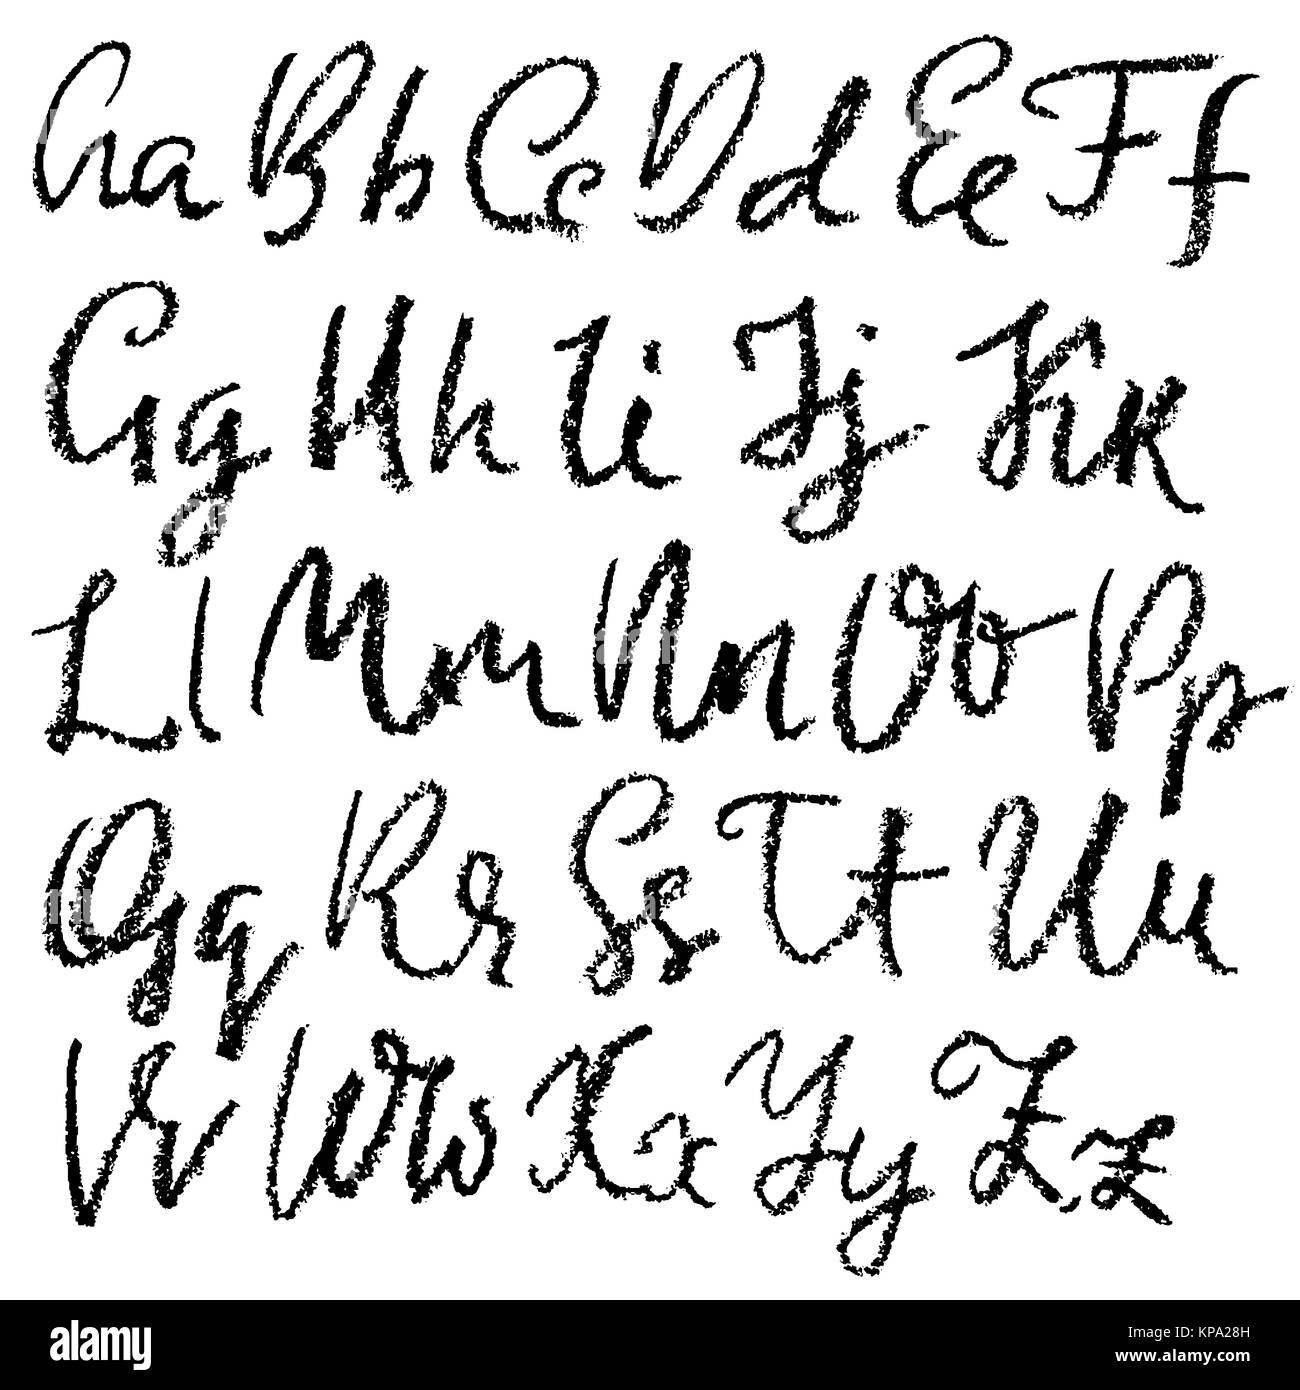 Aa Bb Cc Dd Ee Ff
Gg Hh Ii Jj Kk
Ll Mm Nn Oo Pp
Qq Rr Ss Tt Uu
Vv Ww Xx Yy Zz
alamy
Image ID: KPA28H
www.alamy.com